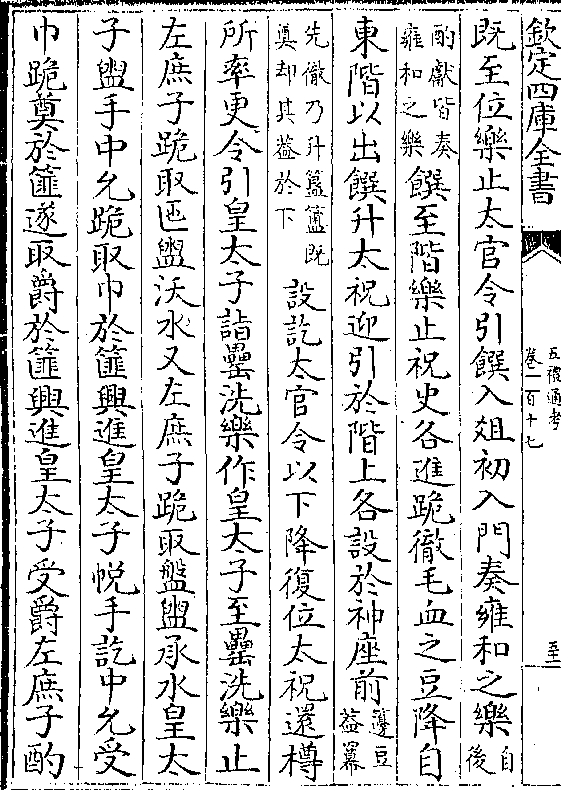 欽定四庫全書
五禮通考
卷一百十七
至
既至位樂止太官令引饌入俎初入門奏雍和之樂自後
酌獻皆奏雍和之樂饌至階樂止祝史各進跪徹毛血之豆降自
東階以出饌升太祝迎引於階上各設於神座前籩豆蓋冪
先徹乃升簋簠既奠却其蓋於下設訖太官令以下降復位太祝還樽
所率更令引皇太子詣罍洗樂作皇太子至罍洗樂止
左庶子跪取匜盥沃水又左庶子跪取盤盥承水皇太
子盥手中允跪取巾於篚興進皇太子帨手訖中允受
巾跪奠於篚遂取爵於篚興進皇太子受爵左庶子酌